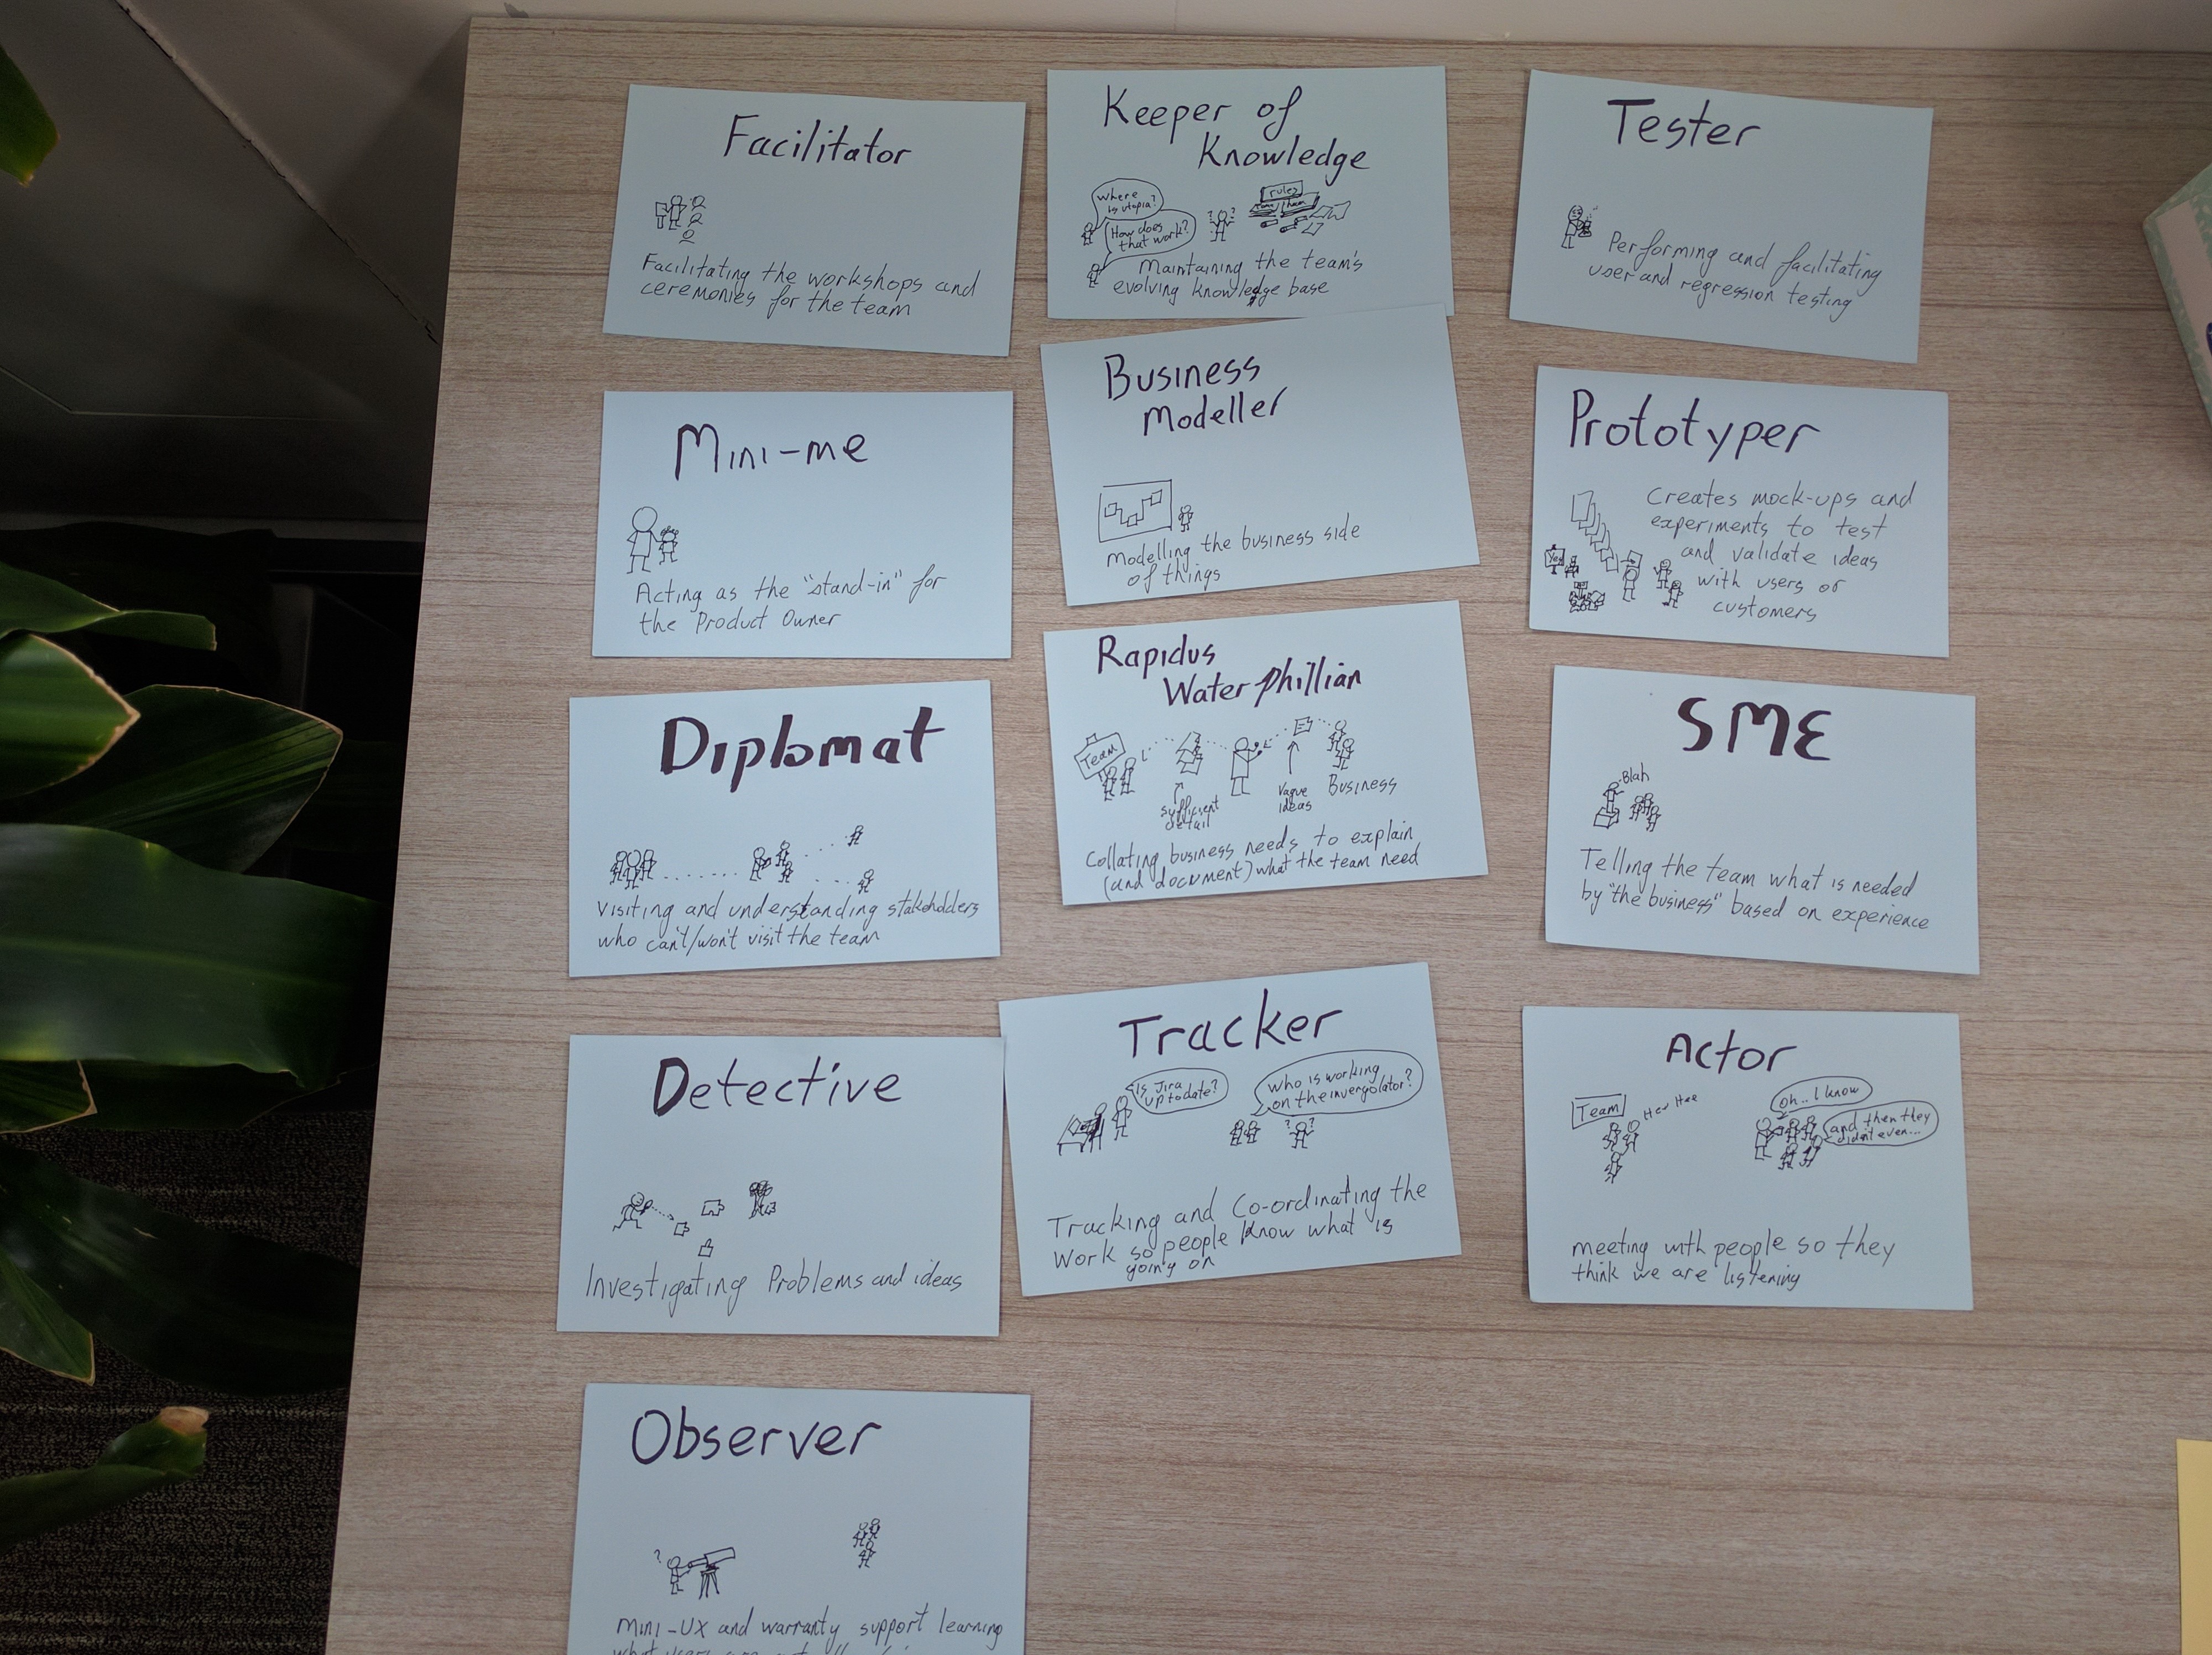 Facilitator
Facilitating the workshops and
ceremonies for the team
Mini-me
Acting as the "stand-in" for
the Product Owner
Diplomat
Visiting and understanding stakeholders
who can't/won't visit the team
Detective
Investigating Problems and ideas
Observer
?
Mini-UX and warranty support learning
what users
Keeper of
Knowledge
Where
is utopia?
How does
that work?
? ?
rules
Maintaining the team's
evolving knowledge base
Business
Modeller
Modelling the business side
of things
Rapidus
Water phillian
Team
sufficient
detail
Vague
ideas
Business
Collating business needs to explain
(and document) what the team need
Tracker
Is Jira
up to date?
who is working
on the invergolator?
? ?
Tracking and Co-ordinating the
Work so people know what is
going on
Tester
Performing and facilitating
user and regression testing
Prototyper
Creates mock-ups and
experiments to test
and validate ideas
with users or
customers
Yes
SME
Blah
Telling the team what is needed
by "the business" based on experience
Actor
Team
Hee Hee
Oh.. I know
and then they
didn't even...
meeting with people so they
think we are listening